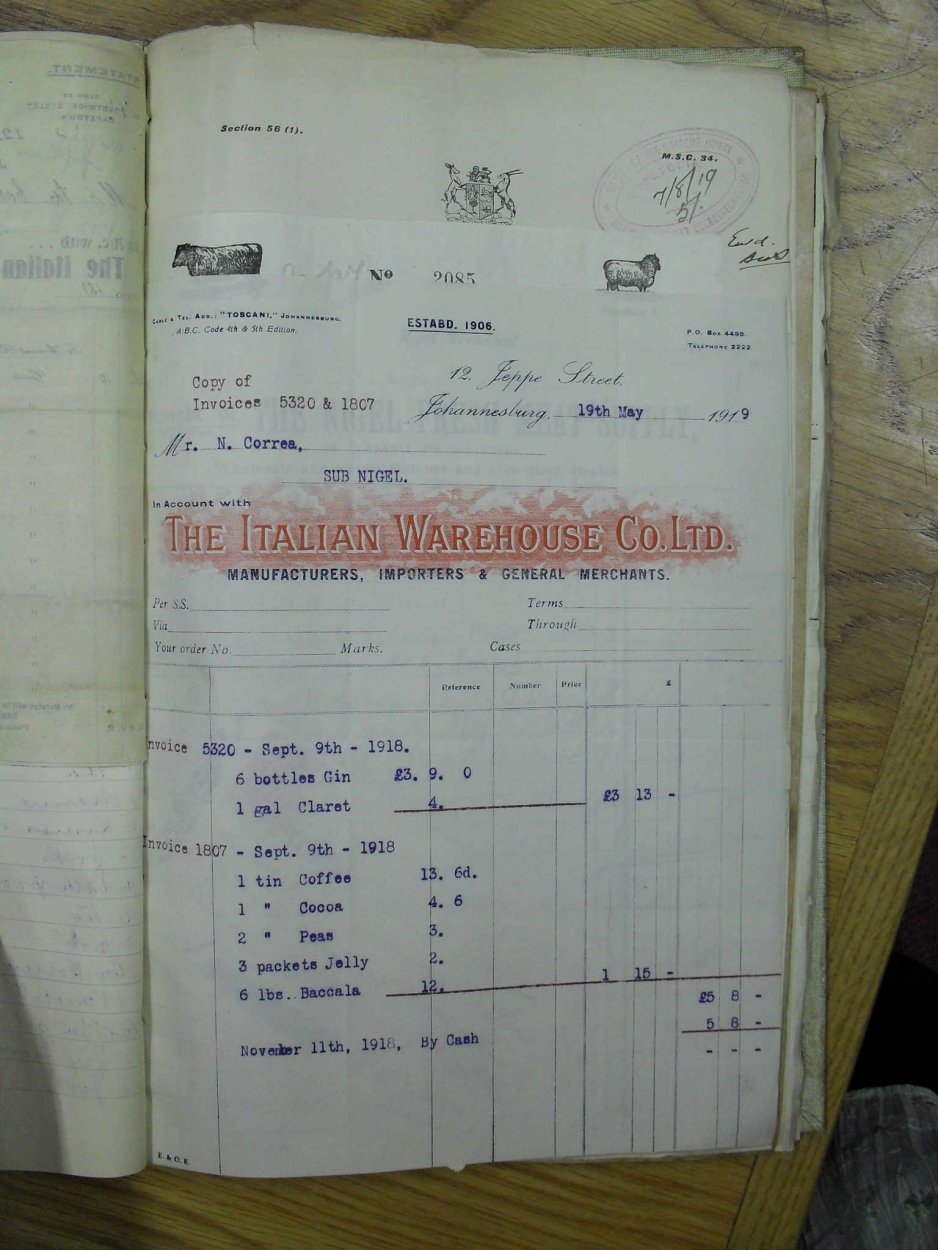 Section 56 (1).
M.S.C. 34.
7/8/19
5/-
Nº 2085
CABLE & TEL. ADD.: "TOSCANI," JOHANNESBURG.
A.B.C. Code 4th & 5th Edition.
ESTABD. 1906.
P.O. Box 4498.
TELEPHONE 2222
12, Jeppe Street,
Copy of
Invoices 5320 & 1807
Johannesburg, 19th May 1919
Mr. N. Correa,
SUB NIGEL.
In Account with
THE ITALIAN WAREHOUSE CO. LTD.
MANUFACTURERS, IMPORTERS & GENERAL MERCHANTS.
Per S.S. Terms
Via Through
Your order No. Marks. Cases
Reference Number Price £
nvoice 5320 - Sept. 9th - 1918.
6 bottles Gin £3. 9. 0
1 gal Claret 4. £3 13 -
Invoice 1807 - Sept. 9th - 1918
1 tin Coffee 13. 6d.
1 " Cocoa 4. 6
2 " Peas 3.
3 packets Jelly 2.
6 lbs.. Baccala 12. 1 15 -
£5 8 -
5 8 -
November 11th, 1918, By Cash - - -
E. & O. E.
STATEMENT.
ALSO AT
CAPETOWN
The Italian